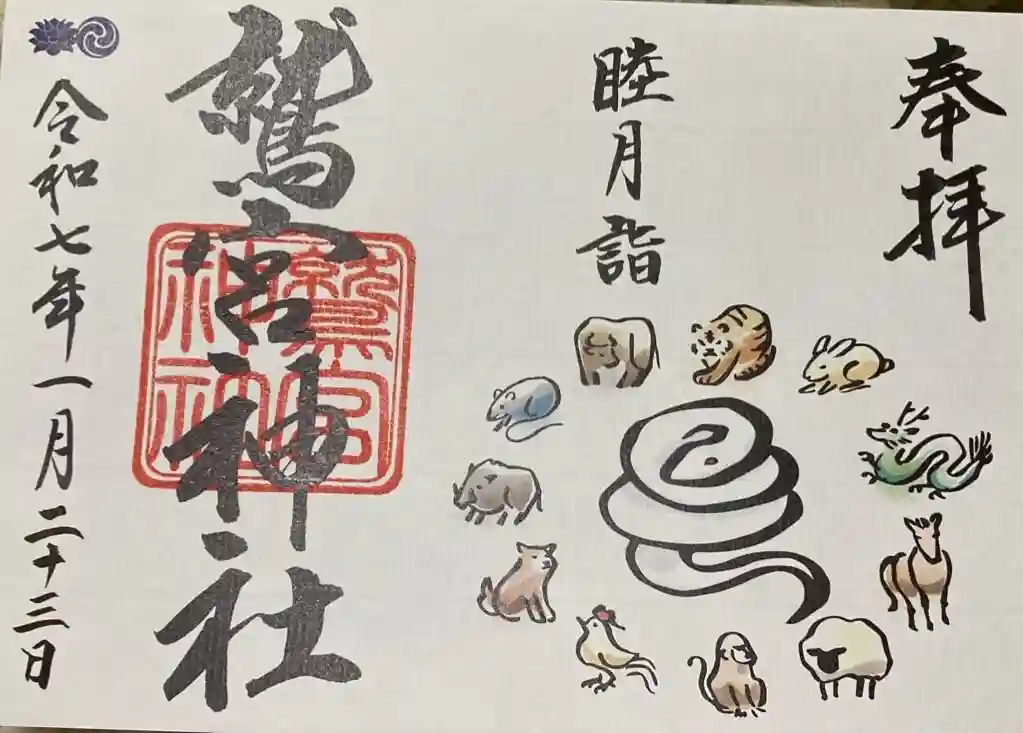 奉拝
睦月詣
鷲宮神社
鷲宮神社
令和七年一月二十三日